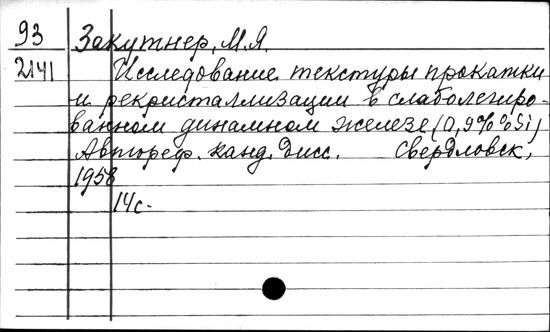 93 Закутнер, М.Я.
2141 Исследование текстуры прокатки
и рекристаллизации в слаболегиро-
ванном динамном железе (0,9%%Si)
Автореф. канд. дисс. Свердловск,
1958
14с.